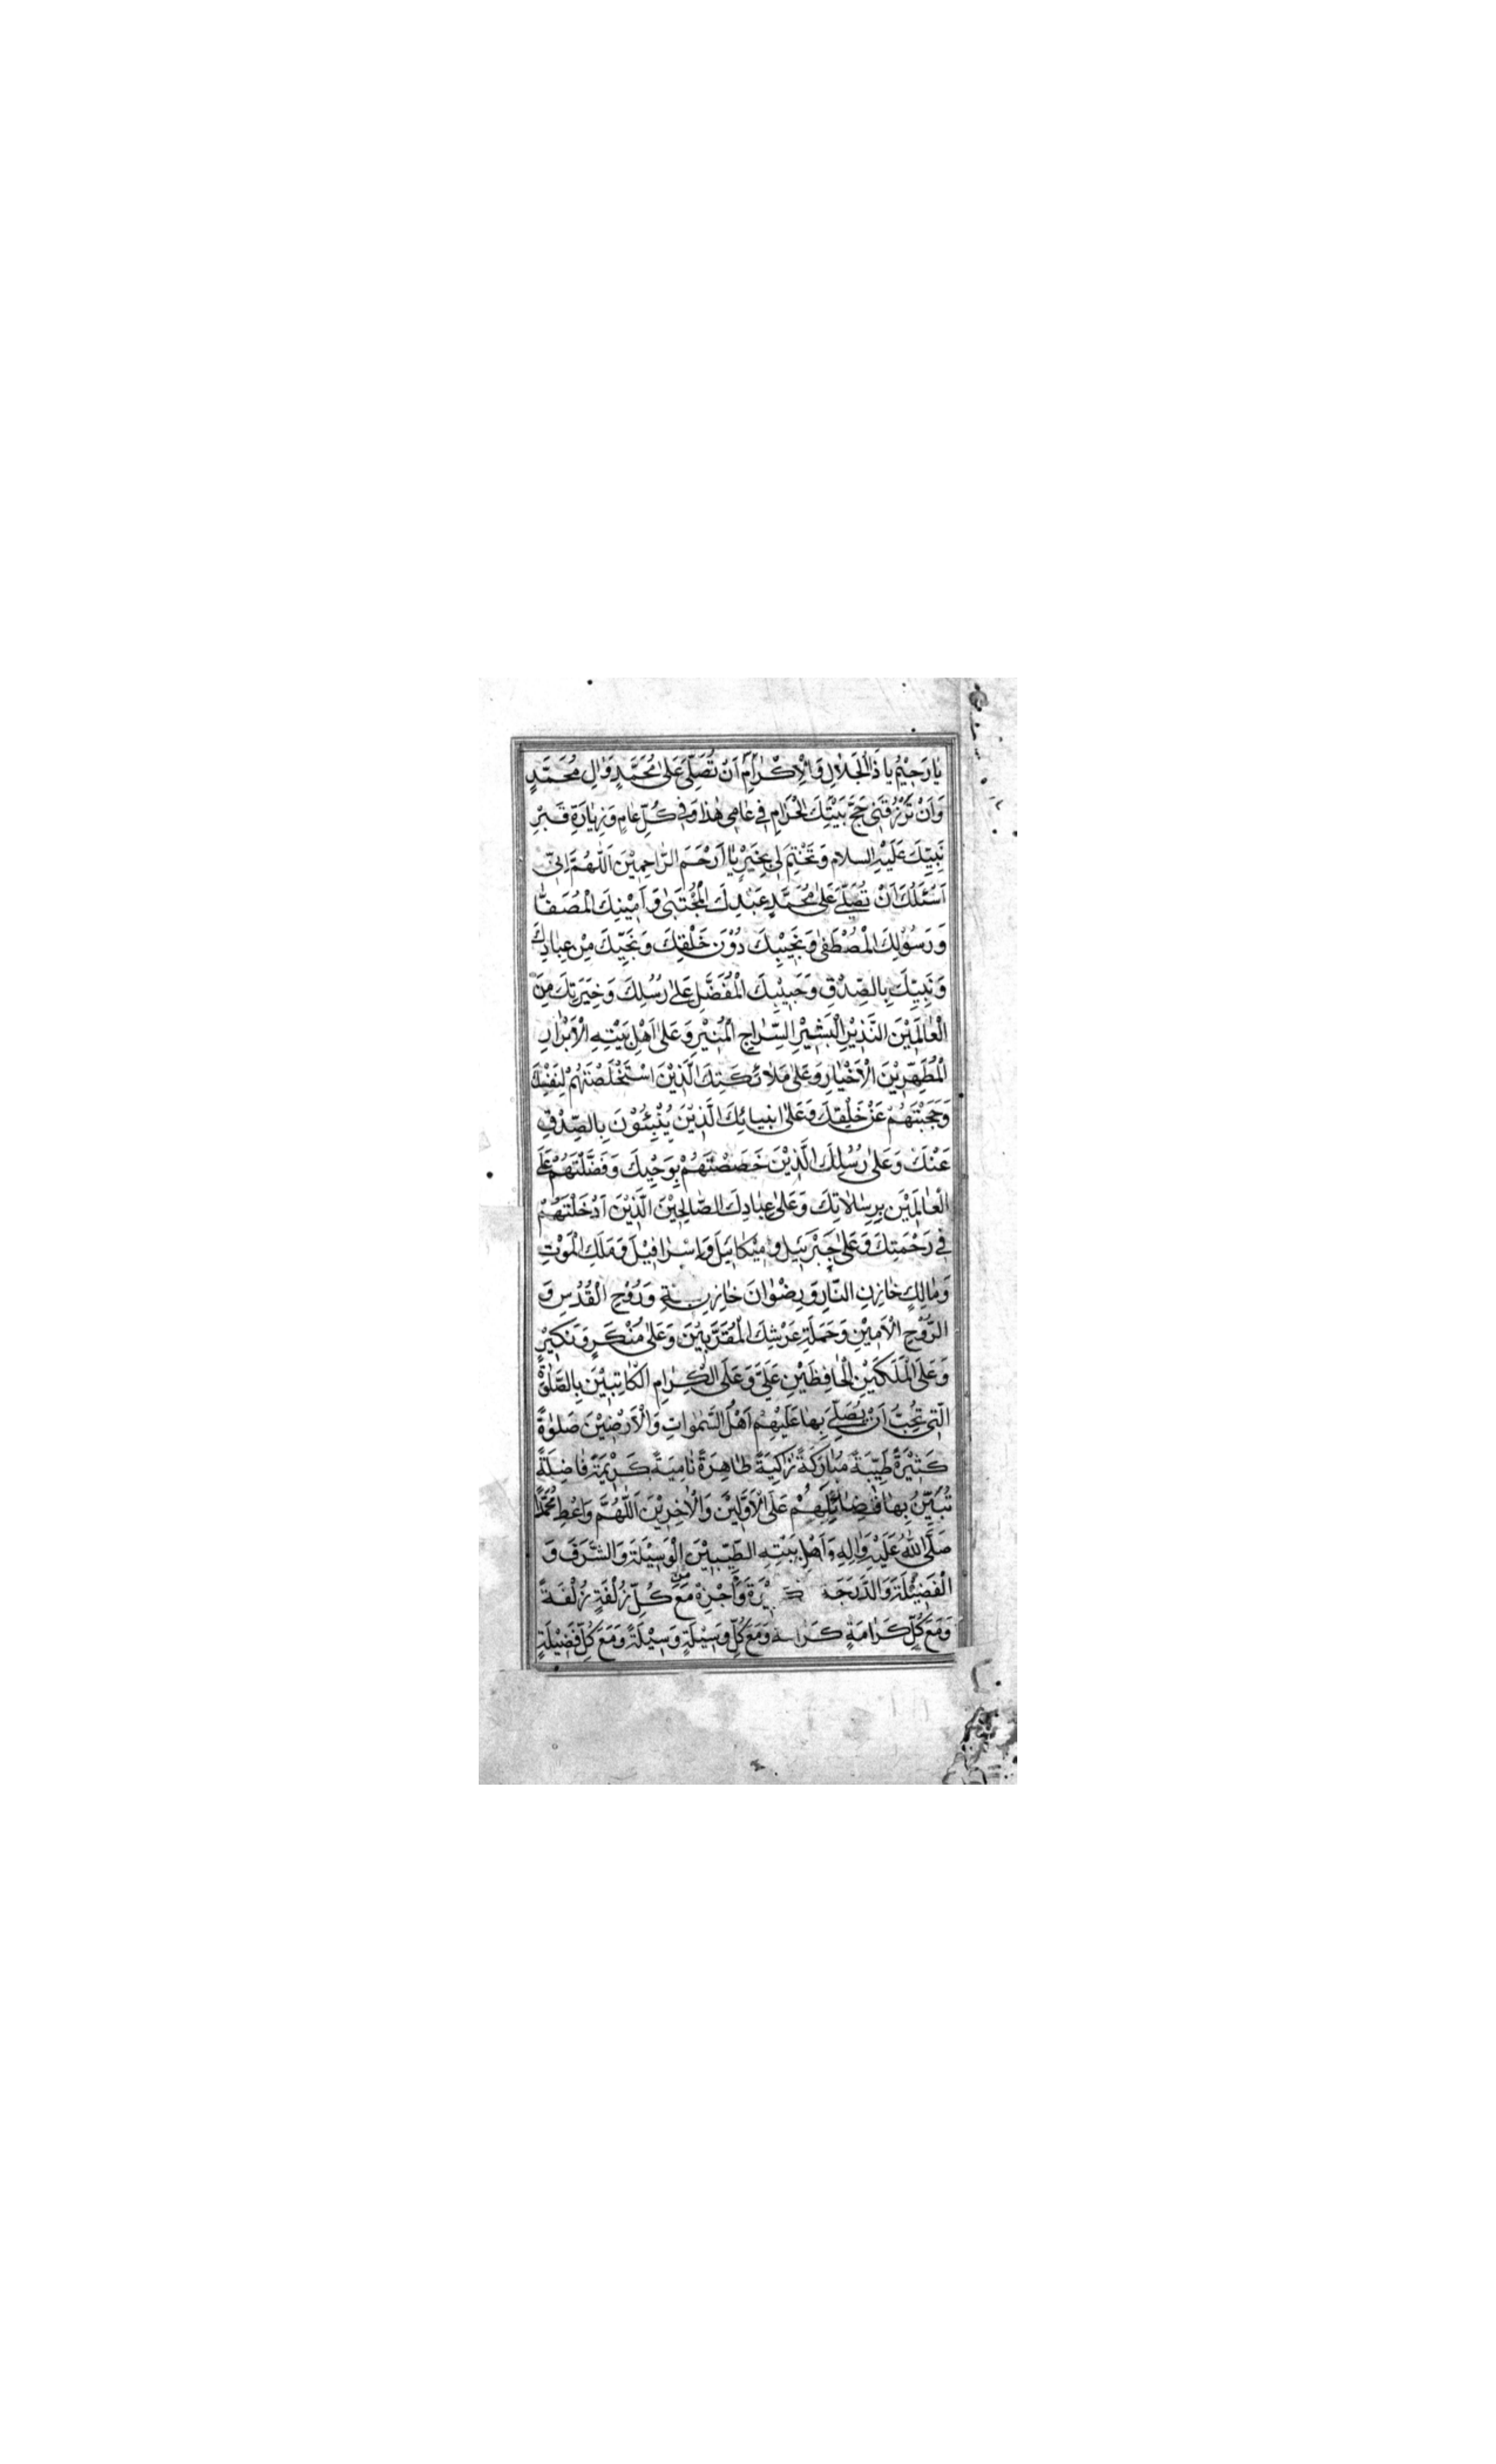 يٰا رَحيْمُ يا ذَ الْجَلٰالِ وَالْاِكْرٰامِ اَنْ تُصَلِّىَ عَلىٰ مُحَمَّدٍ وَاٰلِ مُحَمَّدٍ
وَاَنْ تَرْزُقَنى حَجَّ بَيْتِكَ الْحَرٰامِ فى عٰامى هٰذٰا وَفى كُلِّ عٰامٍ وَزِيٰارَةِ قَبْرِ
نَبِيِّكَ عَلَيْهِ السلام وَتَخْتِمَ لى بِخَيْرٍ يٰا اَرْحَمَ الرّٰاحِميْنَ اَللّٰهُمَّ اِنّى
اَسْئَلُكَ اَنْ تُصَلِّىَ عَلىٰ مُحَمَّدٍ عَبْدِكَ الْمُجْتَبىٰ وَاَميْنِكَ الْمُصَفّٰا
وَرَسُوْلِكَ الْمُصْطَفىٰ وَنَجيْبِكَ دُوْنَ خَلْقِكَ وَنَجِيِّكَ مِنْ عِبٰادِكَ
وَنَبِيِّكَ بِالصِّدْقِ وَحَبيْبِكَ الْمُفَضَّلِ عَلىٰ رُسُلِكَ وَخِيَرَتِكَ مِنَ
الْعٰالَميْنَ النَّذيْرِ الْبَشيْرِ السِّرٰاجِ الْمُنيْرِ وَعَلىٰ اَهْلِ بَيْتِهِ الْاَبْرٰارِ
الْمُطَهَّريْنَ الْاَخْيٰارِ وَعَلىٰ مَلٰائكَتِكَ الَّذيْنَ اسْتَخْلَصْتَهُمْ لِنَفْسِكَ
وَحَجَبْتَهُمْ عَنْ خَلْقِكَ وَعَلىٰ انبيائِكَ الَّذيْنَ يُنْبِئُوْنَ بِالصِّدْقِ
عَنْكَ وَعَلىٰ رُسُلِكَ الَّذيْنَ خَصَصْتَهُمْ بِوَحْيِكَ وَفَضَّلْتَهُمْ عَلَى
الْعٰالَميْنَ بِرِسٰالٰاتِكَ وَعَلىٰ عِبٰادِكَ الصّٰالِحيْنَ الَّذيْنَ اَدْخَلْتَهُمْ
فى رَحْمَتِكَ وَعَلىٰ جَبْرَئيلَ وَميْكٰائيلَ وَاِسْرٰافيْلَ وَمَلَكِ الْمَوْتِ
وَمٰالِكٍ خٰازِنِ النّٰارِ وَرِضْوٰانَ خٰازِنِ وَرُوْحِ الْقُدُسِ وَ
الرُّوْحِ الْاَميْنِ وَحَمَلَةِ عَرْشِكَ الْمُقَرَّبيْنَ وَعَلىٰ مُنْكَرٍ وَنَكيْرٍ
وَعَلَى الْمَلَكَيْنِ الْحٰافِظَيْنِ عَلَىَّ وَعَلَى الْكِرٰامِ الْكٰاتِبيْنَ بِالصَّلٰوةِ
الَّتى تُحِبُّ اَنْ يُصَلِّىَ بِهٰا عَلَيْهِمْ اَهْلُ السَّمٰوٰاتِ وَالْاَرَضيْنَ صَلٰوةً
كَثيْرَةً طَيِّبَةً مُبٰارَكَةً زٰاكِيَةً طٰاهِرَةً نٰامِيَةً كَريْمَةً فٰاضِلَةً
تُبَيِّنُ بِهٰا فَضٰائِلَهُمْ عَلَى الْاَوَّليْنَ وَالْاٰخِريْنَ اَللّٰهُمَّ وَاَعْطِ مُحَمَّدًا
صَلَّى اللّٰهُ عَلَيْهِ وَاٰلِهِ وَاَهْلِ بَيْتِهِ الطَّيِّبيْنَ الْوَسيْلَةَ وَالشَّرَفَ وَ
الْفَضيْلَةَ وَالدَّرَجَةَ وَاَجْزِهِ مَعَ كُلِّ زُلْفَةٍ زُلْفَةً
وَمَعَ كُلِّ كَرٰامَةٍ كَرٰامَةً وَمَعَ كُلِّ وَسيْلَةٍ وَسيْلَةً وَمَعَ كُلِّ فَضيْلَةٍ